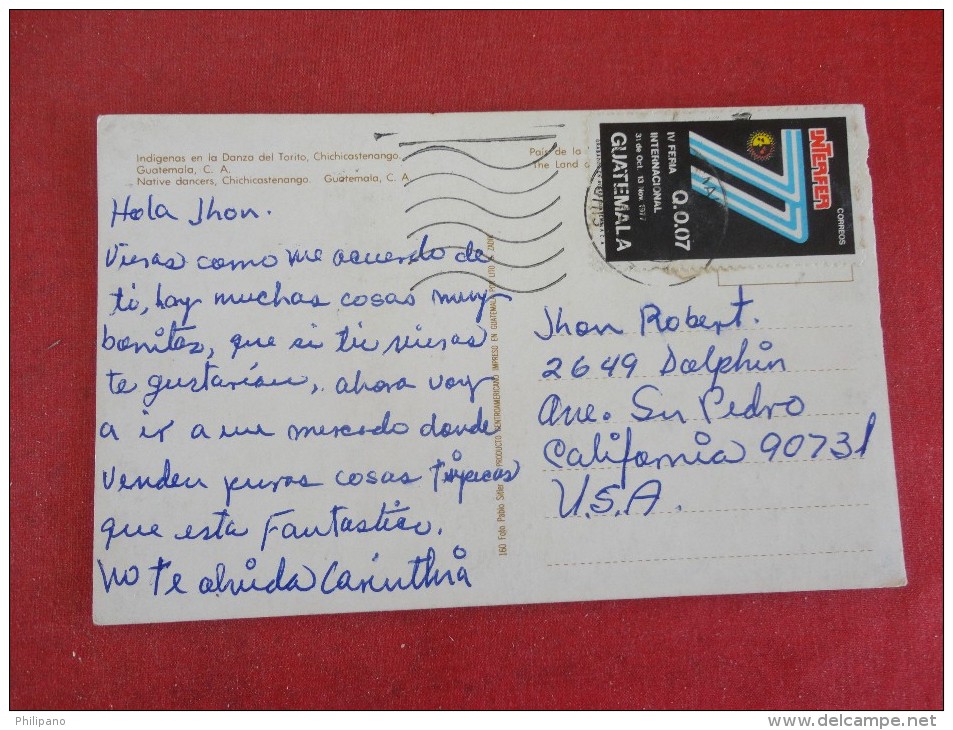 Indigenas en la Danza del Torito, Chichicastenango.
Guatemala, C. A.
Native dancers, Chichicastenango. Guatemala, C. A.
País de la
The Land o
Hola Jhon.
Vieras como me acuerdo de
ti, hay muchas cosas muy
bonitas, que si tu vieras
te gustarían, ahora voy
a ir a un mercado donde
venden puras cosas típicas
que esta Fantastico.
No te olvida Carinthia
160 Foto Pablo Sitler PRODUCTO CENTROAMERICANO IMPRESO EN GUATEMALA POR LITO
INTERFER
77
CORREOS
IV FERIA
INTERNACIONAL
31 de Oct. 13 Nov. 1977
Q.0.07
GUATEMALA
Jhon Robert.
2649 Dolphin
Ave. Sn Pedro
California 90731
U.S.A.
Philipano
www.delcampe.net